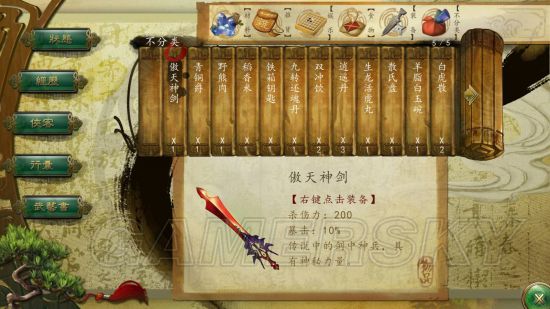 状态
经历
侠客
行囊
武艺书
材料
娱乐
食物
装备
不分类
不分类
5/5
傲天神剑 X1
青铜爵
野熊肉
稻香米
铁箱钥匙
九转还魂丹
双冲饮
逍遥丹
生龙活虎丸
散氏盘
羊脂白玉碗
白虎散 X2
傲天神剑
【右键点击装备】
杀伤力：200
暴击：10%
传说中的剑中神兵，具
有神秘力量。
物品
GAMERSKY